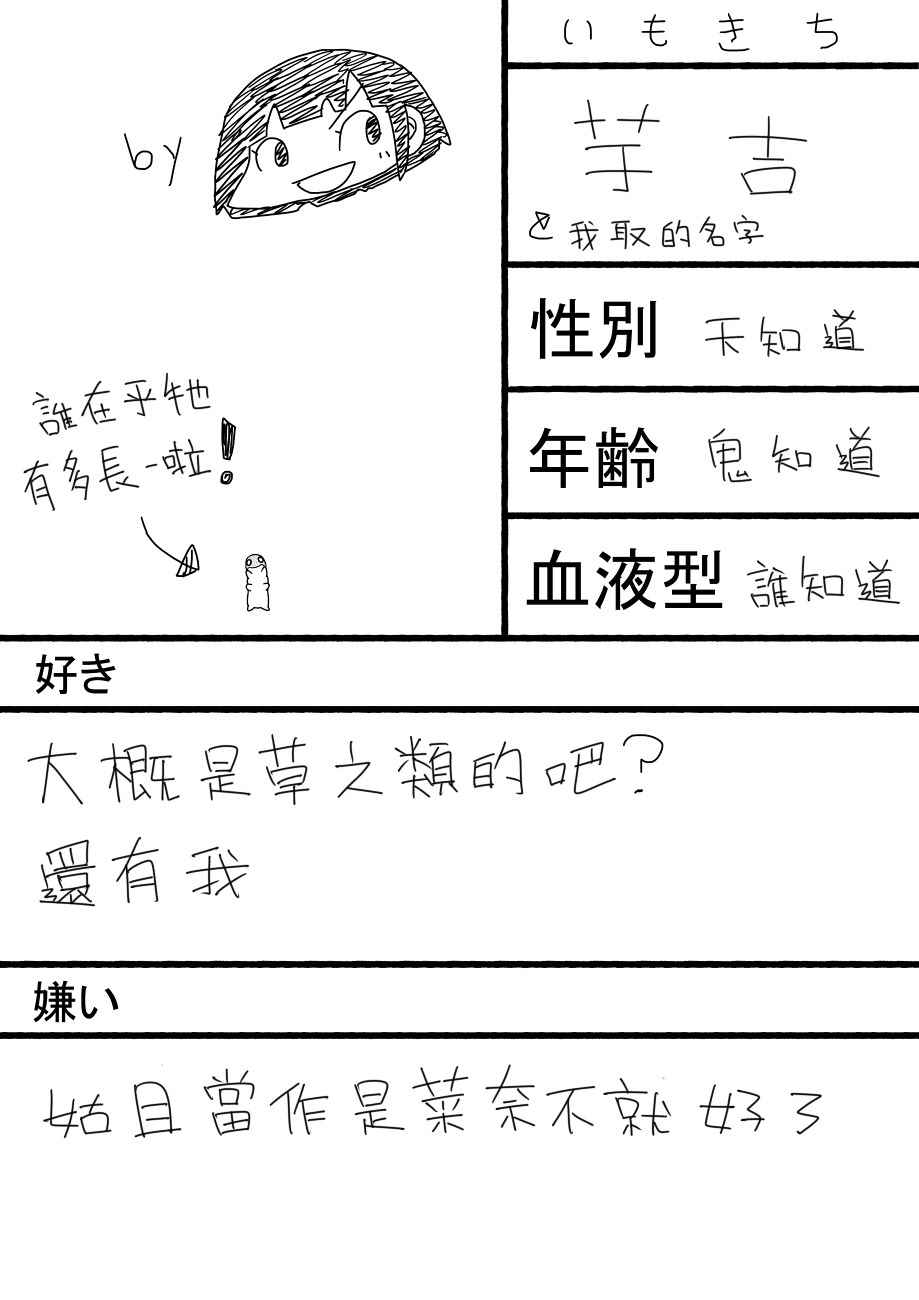 by
誰在乎牠
有多長-啦!
いもきち
芋吉
我取的名字
性別 天知道
年齢 鬼知道
血液型 誰知道
好き
大概是草之類的吧?
還有我
嫌い
姑且當作是菜奈不就好了